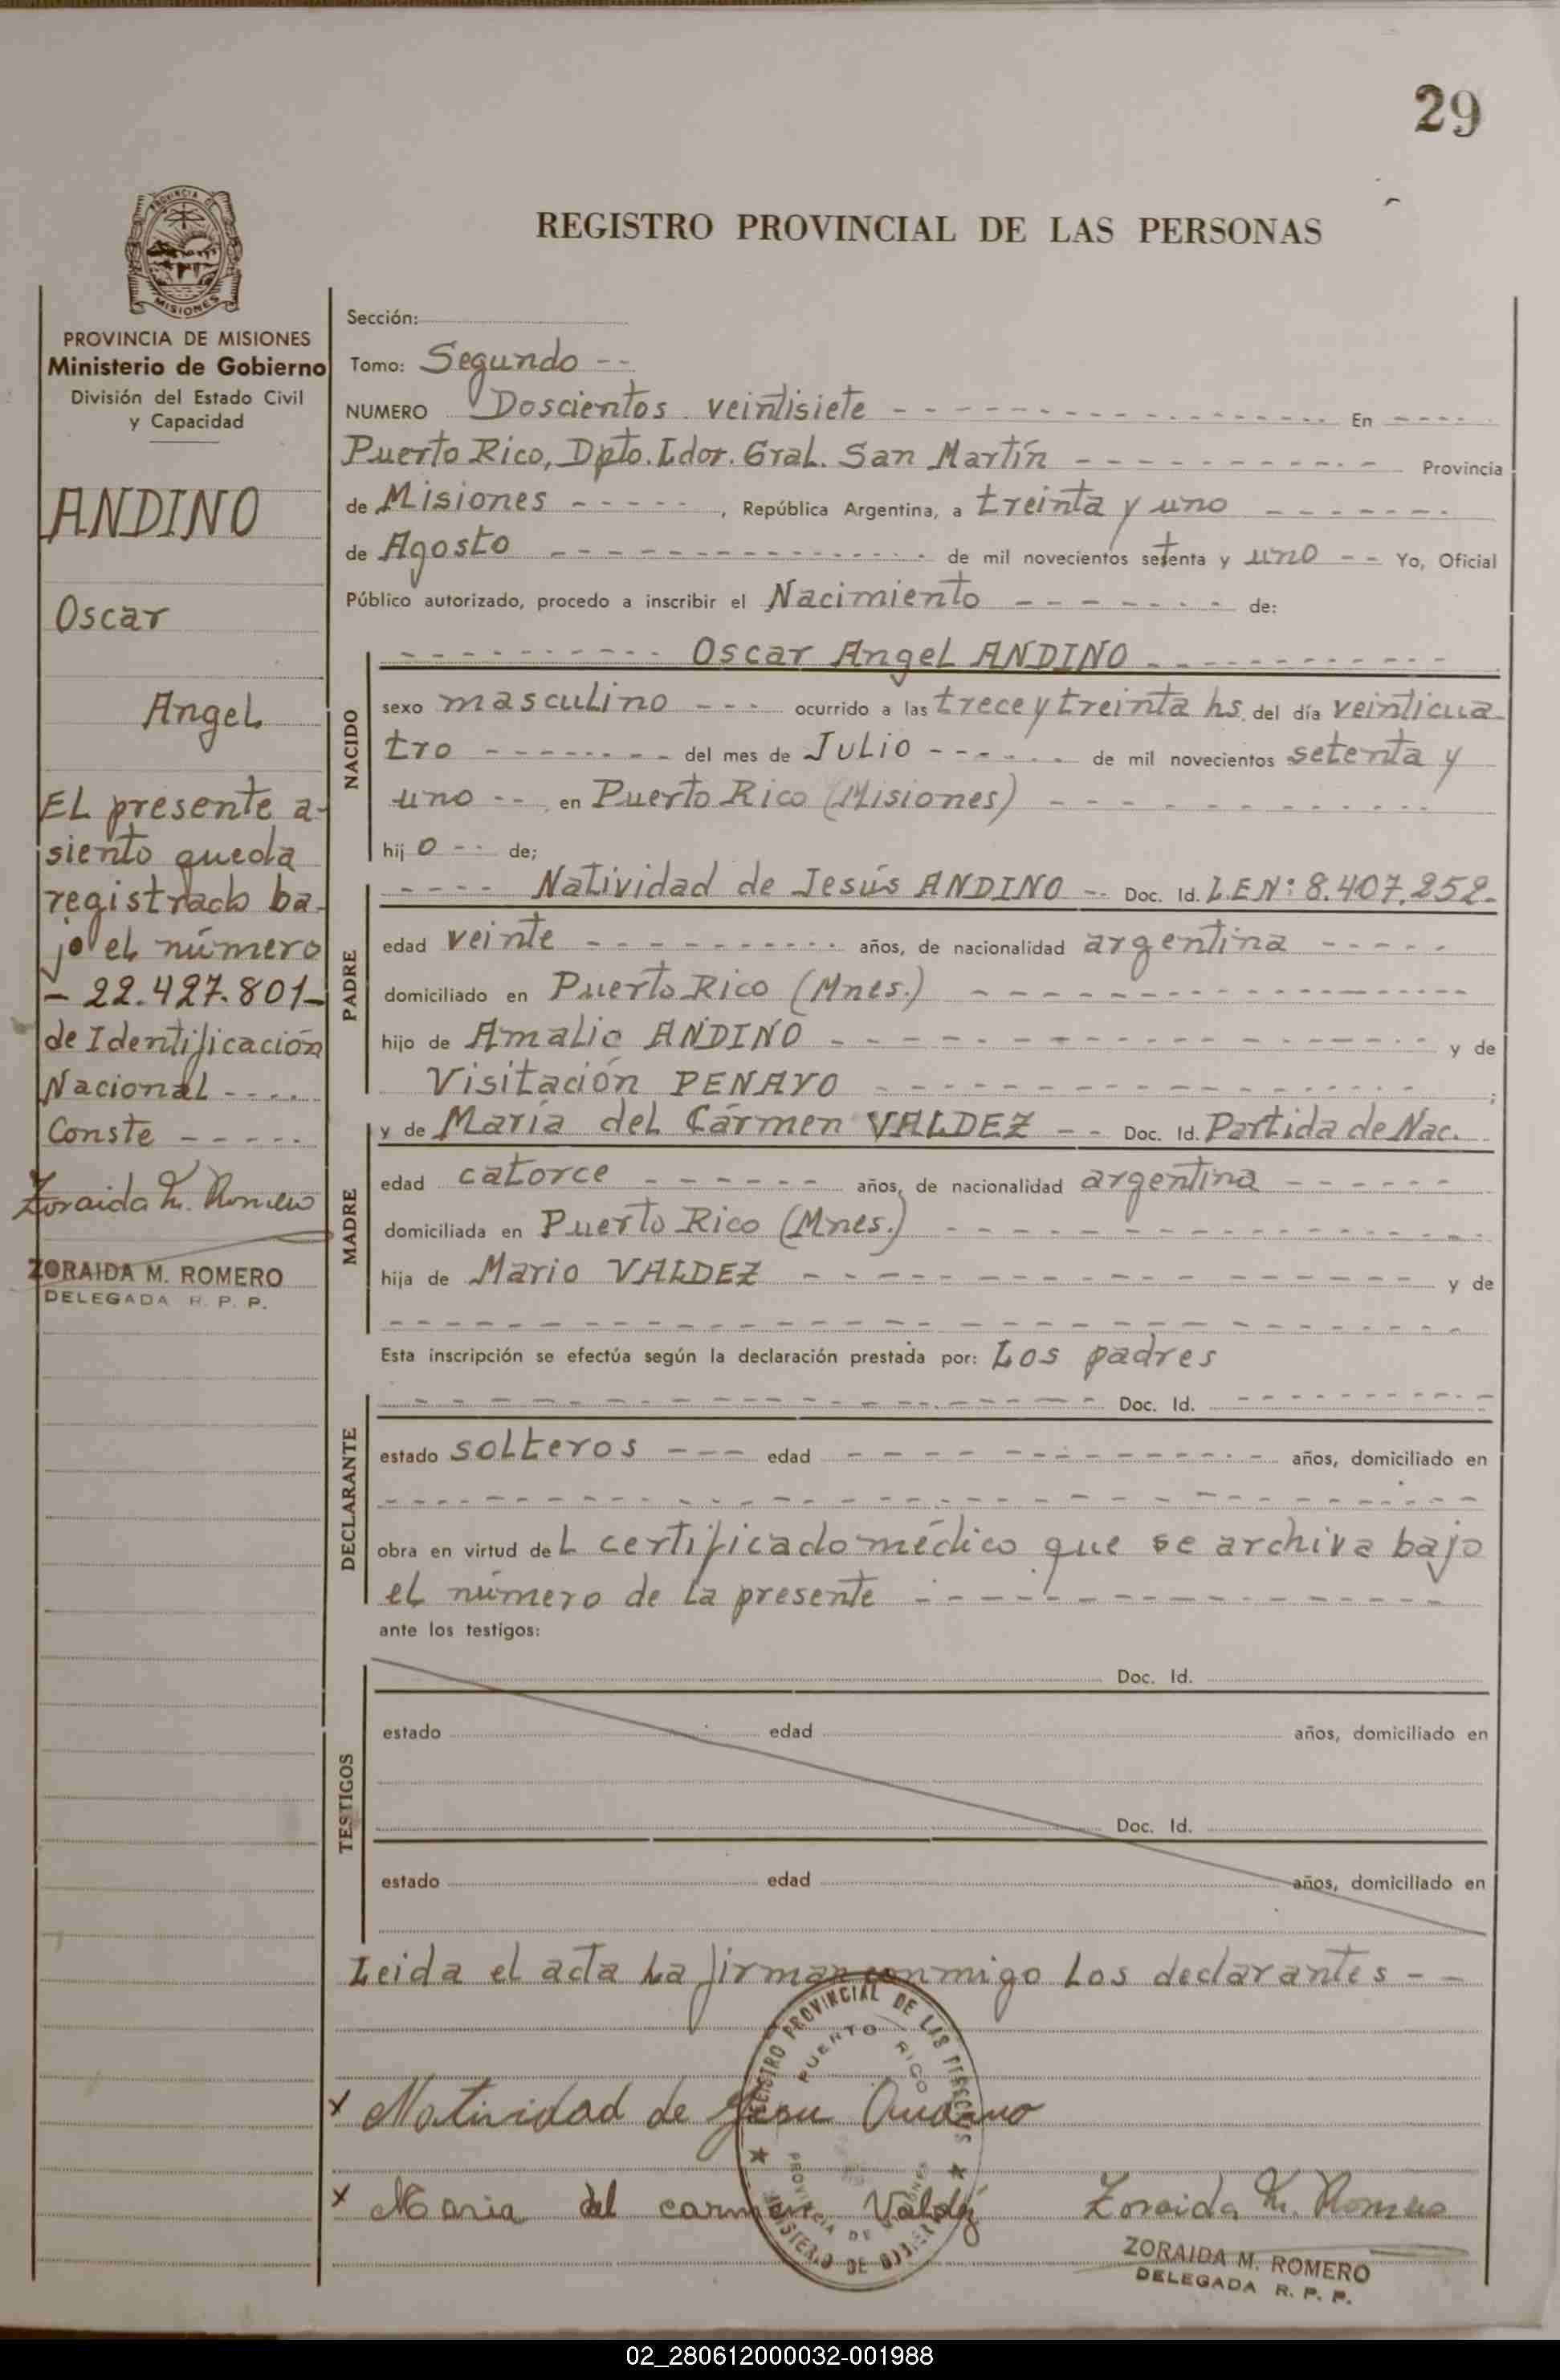 29
REGISTRO PROVINCIAL DE LAS PERSONAS
PROVINCIA DE MISIONES
PROVINCIA DE MISIONES
Ministerio de Gobierno
División del Estado Civil
y Capacidad
ANDINO
Oscar
Angel
EL presente a-
siento queda
registrado ba-
jo el número
- 22.427.801-
de Identificación
Nacional - - - -
Conste - - - - -
Zoraida M. Romero
ZORAIDA M. ROMERO
DELEGADA R. P. P.
Sección:
Tomo: Segundo - -
NUMERO Doscientos veintisiete - - - En - - -
Puerto Rico, Dpto. Ldor. Gral. San Martín - - - Provincia
de Misiones - - - , República Argentina, a treinta y uno - - -
de Agosto - - - de mil novecientos setenta y uno - - Yo, Oficial
Público autorizado, procedo a inscribir el Nacimiento - - - de:
NACIDO
- - - Oscar Angel ANDINO - - -
sexo masculino - - - ocurrido a las trece y treinta hs. del día veinticua-
tro - - - del mes de Julio - - - de mil novecientos setenta y
uno - - en Puerto Rico (Misiones) - - -
hij o - - de;
PADRE
- - - - Natividad de Jesús ANDINO - - Doc. Id. L.E.Nº: 8.407.252-
edad veinte - - - años, de nacionalidad argentina - - -
domiciliado en Puerto Rico (Mnes.) - - -
hijo de Amalio ANDINO - - - y de
Visitación PENAYO - - - ;
MADRE
y de María del Cármen VALDEZ - - Doc. Id. Partida de Nac.
edad catorce - - - años, de nacionalidad argentina - - -
domiciliada en Puerto Rico (Mnes.) - - -
hija de Mario VALDEZ - - - y de
- - -
Esta inscripción se efectúa según la declaración prestada por: Los padres
DECLARANTE
- - - Doc. Id. - - -
estado solteros - - - edad - - - años, domiciliado en
- - -
obra en virtud del certificado médico que se archiva bajo
el número de la presente - - -
ante los testigos:
TESTIGOS
Doc. Id.
estado edad años, domiciliado en
Doc. Id.
estado edad años, domiciliado en
Leida el acta la firman conmigo los declarantes - -
REGISTRO PROVINCIAL DE LAS PERSONAS
PUERTO RICO
PROVINCIA DE MISIONES
MINISTERIO DE GOBIERNO
x Natividad de Jesu Andino
x Maria del carmen Valdez
Zoraida M. Romero
ZORAIDA M. ROMERO
DELEGADA R. P. P.
02_280612000032-001988